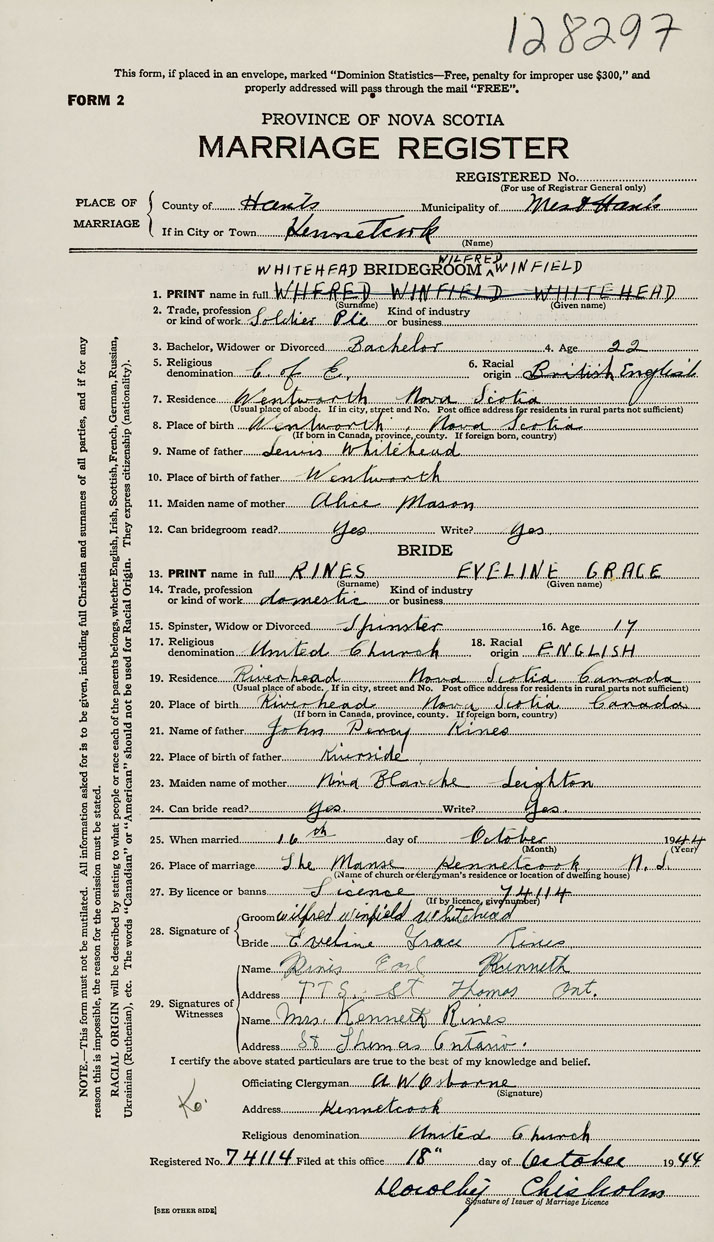 128297
This form, if placed in an envelope, marked "Dominion Statistics—Free, penalty for improper use $300," and
properly addressed will pass through the mail "FREE".
FORM 2
PROVINCE OF NOVA SCOTIA
MARRIAGE REGISTER
REGISTERED No.
(For use of Registrar General only)
PLACE OF MARRIAGE
County of Hants Municipality of West Hants
If in City or Town Kennetcook
(Name)
WHITEHEAD BRIDEGROOM WILFRED WINFIELD
1. PRINT name in full WILFRED WINFIELD WHITEHEAD
(Surname) (Given name)
2. Trade, profession or kind of work Soldier Pte Kind of industry or business
3. Bachelor, Widower or Divorced Bachelor 4. Age 22
5. Religious denomination C of E. 6. Racial origin British English
7. Residence Wentworth Nova Scotia
(Usual place of abode. If in city, street and No. Post office address for residents in rural parts not sufficient)
8. Place of birth Wentworth, Nova Scotia
(If born in Canada, province, county. If foreign born, country)
9. Name of father Lewis Whitehead
10. Place of birth of father Wentworth
11. Maiden name of mother Alice Mason
12. Can bridegroom read? Yes Write? Yes
BRIDE
13. PRINT name in full RINES EVELINE GRACE
(Surname) (Given name)
14. Trade, profession or kind of work domestic Kind of industry or business
15. Spinster, Widow or Divorced Spinster 16. Age 17
17. Religious denomination United Church 18. Racial origin ENGLISH
19. Residence Riverhead Nova Scotia Canada
(Usual place of abode. If in city, street and No. Post office address for residents in rural parts not sufficient)
20. Place of birth Riverhead Nova Scotia Canada
(If born in Canada, province, county. If foreign born, country)
21. Name of father John Percy Rines
22. Place of birth of father Riverside
23. Maiden name of mother Nina Blanche Leighton
24. Can bride read? Yes. Write? Yes.
25. When married 16th day of October 1944
(Month) (Year)
26. Place of marriage The Manse Kennetcook N.S.
(Name of church or clergyman's residence or location of dwelling house)
27. By licence or banns Licence 74114
(If by licence, give number)
28. Signature of
Groom Wilfred Winfield Whitehead
Bride Eveline Grace Rines
29. Signatures of Witnesses
Name Rines Earl Kenneth
Address T.T.S. St Thomas Ont.
Name Mrs. Kenneth Rines
Address St Thomas Ontario.
I certify the above stated particulars are true to the best of my knowledge and belief.
Officiating Clergyman A W Osborne
(Signature)
Address Kennetcook
Religious denomination United Church
Registered No. 74114 Filed at this office 18" day of October 1944
Dorothy Chisholm
Signature of Issuer of Marriage Licence
[SEE OTHER SIDE]
NOTE.—This form must not be mutilated. All information asked for is to be given, including full Christian and surnames of all parties, and if for any
reason this is impossible, the reason for the omission must be stated.
RACIAL ORIGIN will be described by stating to what people or race each of the parents belongs, whether English, Irish, Scottish, French, German, Russian,
Ukrainian (Ruthenian), etc. The words "Canadian" or "American" should not be used for Racial Origin. They express citizenship (nationality).